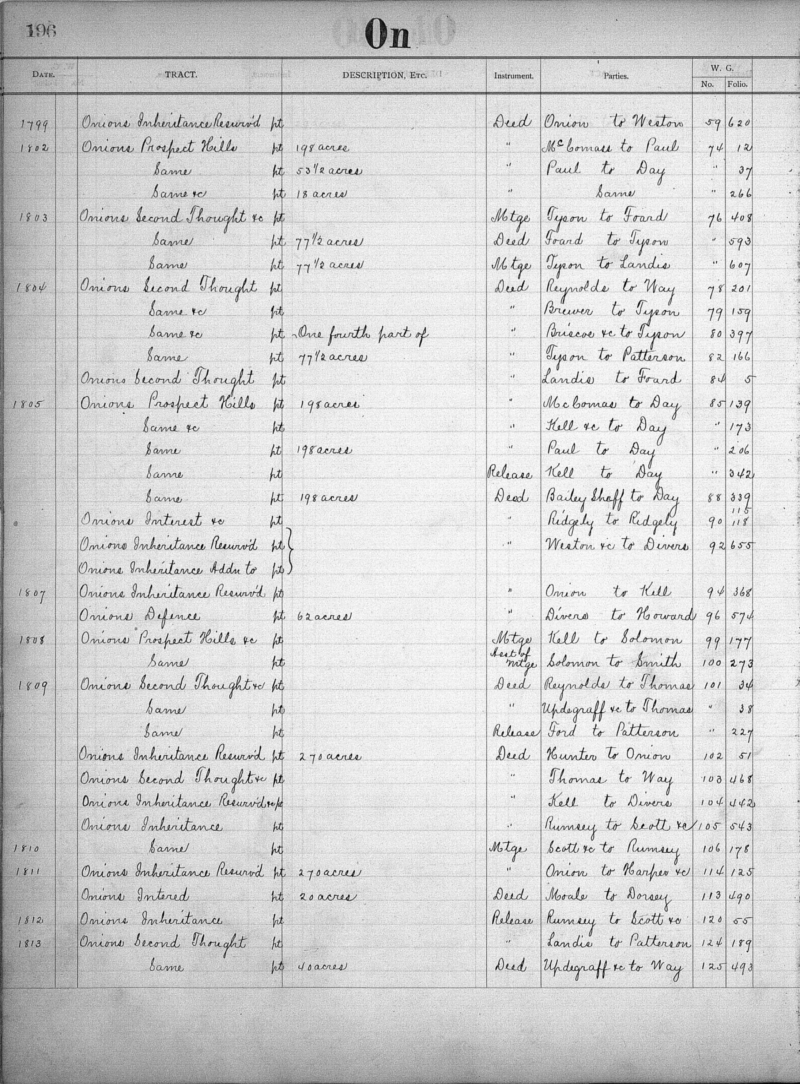 196
On
DATE. TRACT. DESCRIPTION, ETC. Instrument. Parties. W. G. No. Folio.
1799 Onions Inheritance Resurv'd pt Deed Onion to Weston 59 620
1802 Onions Prospect Hills pt 198 acres " McComass to Paul 74 12
Same pt 53 1/2 acres " Paul to Day " 37
Same &c pt 18 acres " Same " 266
1803 Onions Second Thought &c pt Mtge Tyson to Foard 76 408
Same pt 77 1/2 acres Deed Foard to Tyson " 593
Same pt 77 1/2 acres Mtge Tyson to Landis " 607
1804 Onions Second Thought pt Deed Reynolds to Way 78 201
Same &c pt " Brewer to Tyson 79 159
Same &c pt One fourth part of " Briscoe &c to Tyson 80 397
Same pt 77 1/2 acres " Tyson to Patterson 82 166
Onions Second Thought pt " Landis to Foard 84 5
1805 Onions Prospect Hills pt 198 acres " McComas to Day 85 139
Same &c pt " Kell &c to Day " 173
Same pt 198 acres " Paul to Day " 206
Same pt Release Kell to Day " 342
Same pt 198 acres Deed Bailey Sheff to Day 88 339
Onions Interest &c pt " Ridgely to Ridgely 90 115 118
Onions Inheritance Resurv'd pt } " Weston &c to Divers 92 655
Onions Inheritance Addn to pt }
1807 Onions Inheritance Resurv'd pt " Onion to Kell 94 368
Onions Defence pt 62 acres " Divers to Howard 96 574
1808 Onions Prospect Hills &c pt Mtge Kell to Solomon 99 177
Same pt Asst of Mtge Solomon to Smith 100 273
1809 Onions Second Thought &c pt Deed Reynolds to Thomas 101 34
Same pt " Updegraff &c to Thomas " 38
Same pt Release Ford to Patterson " 227
Onions Inheritance Resurv'd pt 270 acres Deed Hunter to Onion 102 51
Onions Second Thought &c pt " Thomas to Way 103 468
Onions Inheritance Resurv'd &c pt " Kell to Divers 104 442
Onions Inheritance pt " Rumsey to Scott &c 105 543
1810 Same pt Mtge Scott &c to Rumsey 106 178
1811 Onions Inheritance Resurv'd pt 270 acres " Onion to Harper &c 114 125
Onions Intered pt 20 acres Deed Moale to Dorsey 113 490
1812 Onions Inheritance pt Release Rumsey to Scott &c 120 55
1813 Onions Second Thought pt " Landis to Patterson 124 189
Same pt 40 acres Deed Updegraff &c to Way 125 493